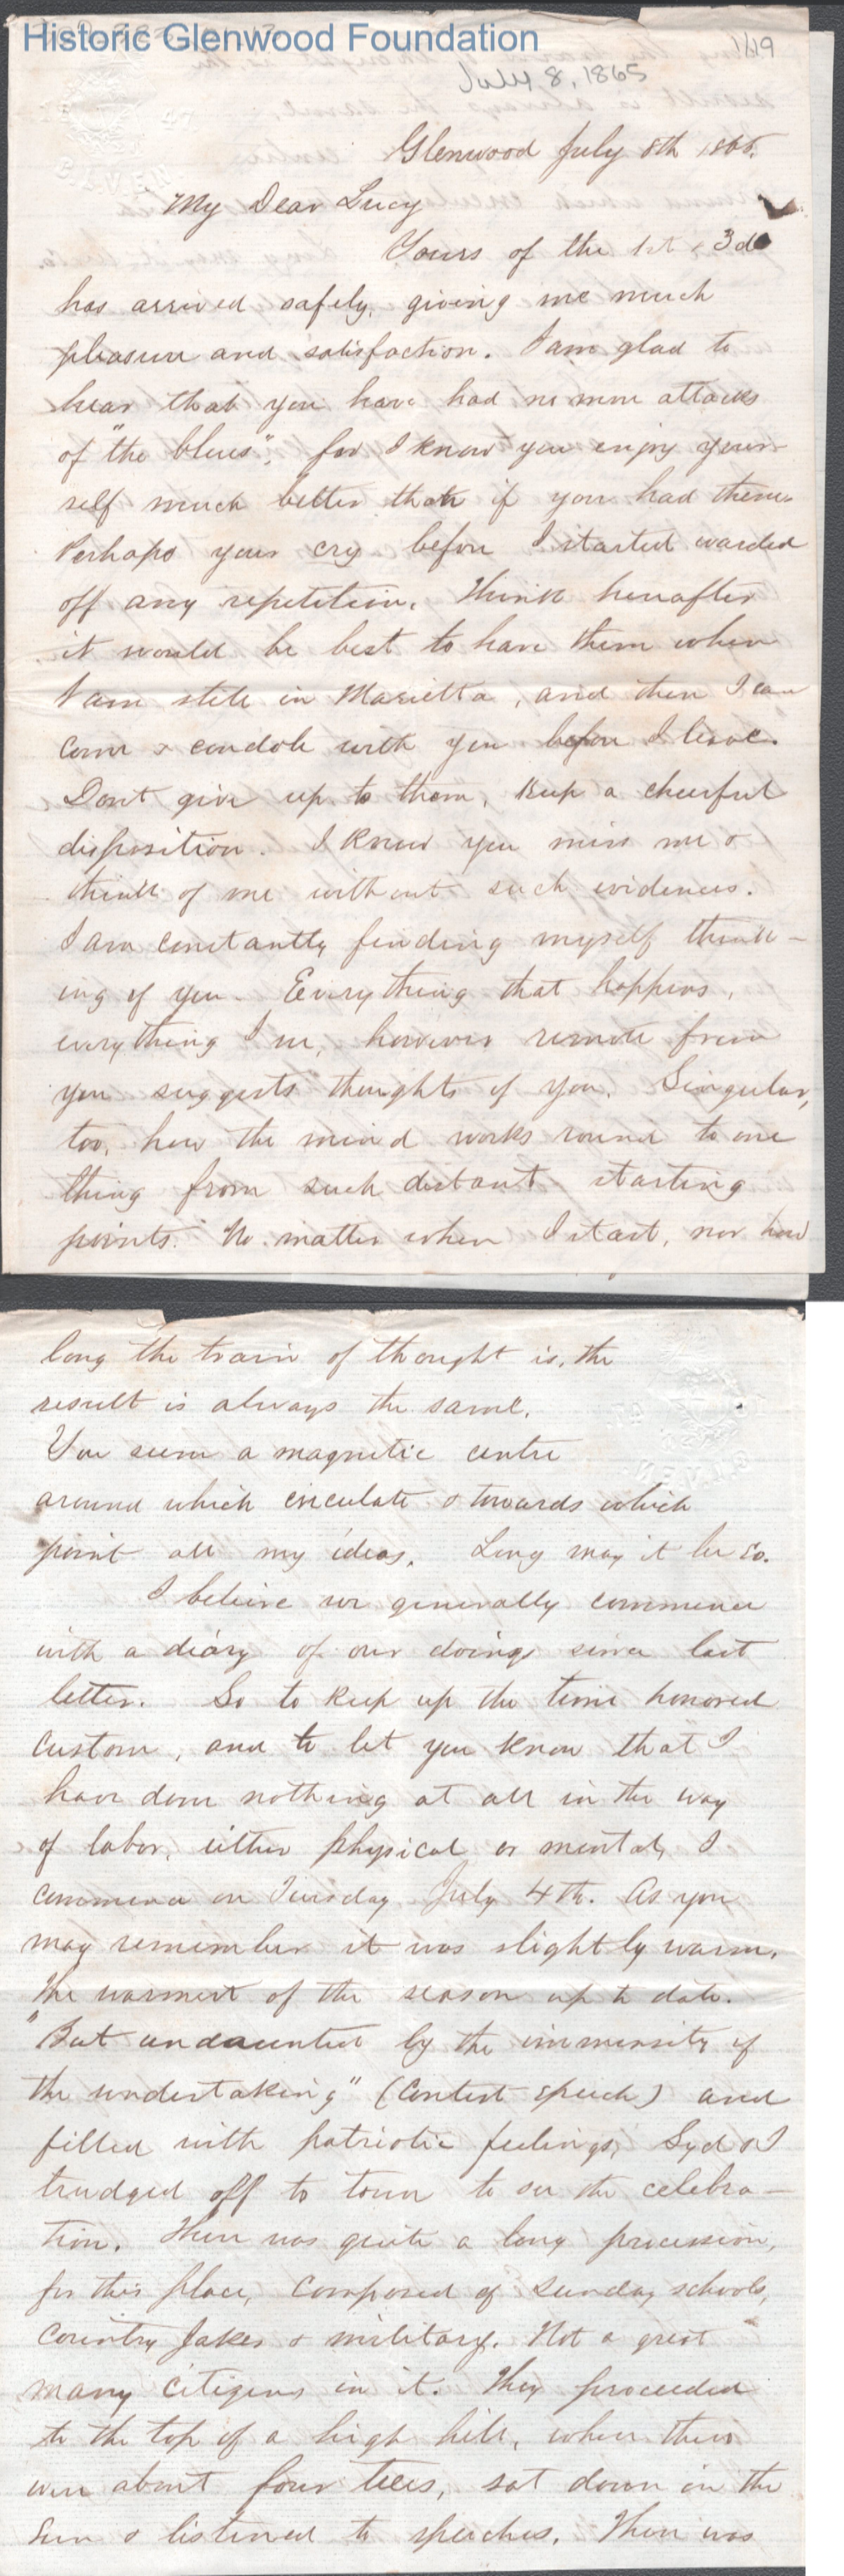 Historic Glenwood Foundation
1119
July 8, 1865
Glenwood July 8th 1865.
My Dear Lucy
Yours of the 1st & 3d
has arrived safely, giving me much
pleasure and satisfaction. I am glad to
hear that you have had no more attacks
of "the blues", for I know you enjoy your-
self much better than if you had them.
Perhaps your cry before I started warded
off any repetition. Think hereafter
it would be best to have them when
I am still in Marietta, and then I can
come & condole with you before I leave.
Dont give up to them, keep a cheerful
disposition. I know you miss me &
think of me without such evidences.
I am constantly finding myself think-
ing of you. Everything that happens,
everything I see, however remote from
you suggests thoughts of you. Singular,
too, how the mind works round to one
thing from such distant starting
points. No matter where I start, nor how
long the train of thought is, the
result is always the same.
You seem a magnetic centre
around which circulate & towards which
point all my ideas. Long may it be so.
I believe we generally commence
with a diary of our doings since last
letter. So to keep up the time honored
custom, and to let you know that I
have done nothing at all in the way
of labor, either physical or mental, I
commence on Tuesday July 4th. As you
may remember it was slightly warm.
The warmest of the season up to date.
"But undaunted by the immensity of
the undertaking" (Contest speech) and
filled with patriotic feelings, Syd & I
trudged off to town to see the celebra-
tion. There was quite a long procession,
for this place, composed of Sunday schools,
Country Jakes & military. Not a great
many citizens in it. They proceeded
to the top of a high hill, where there
were about four trees, sat down in the
sun & listened to speeches. There was